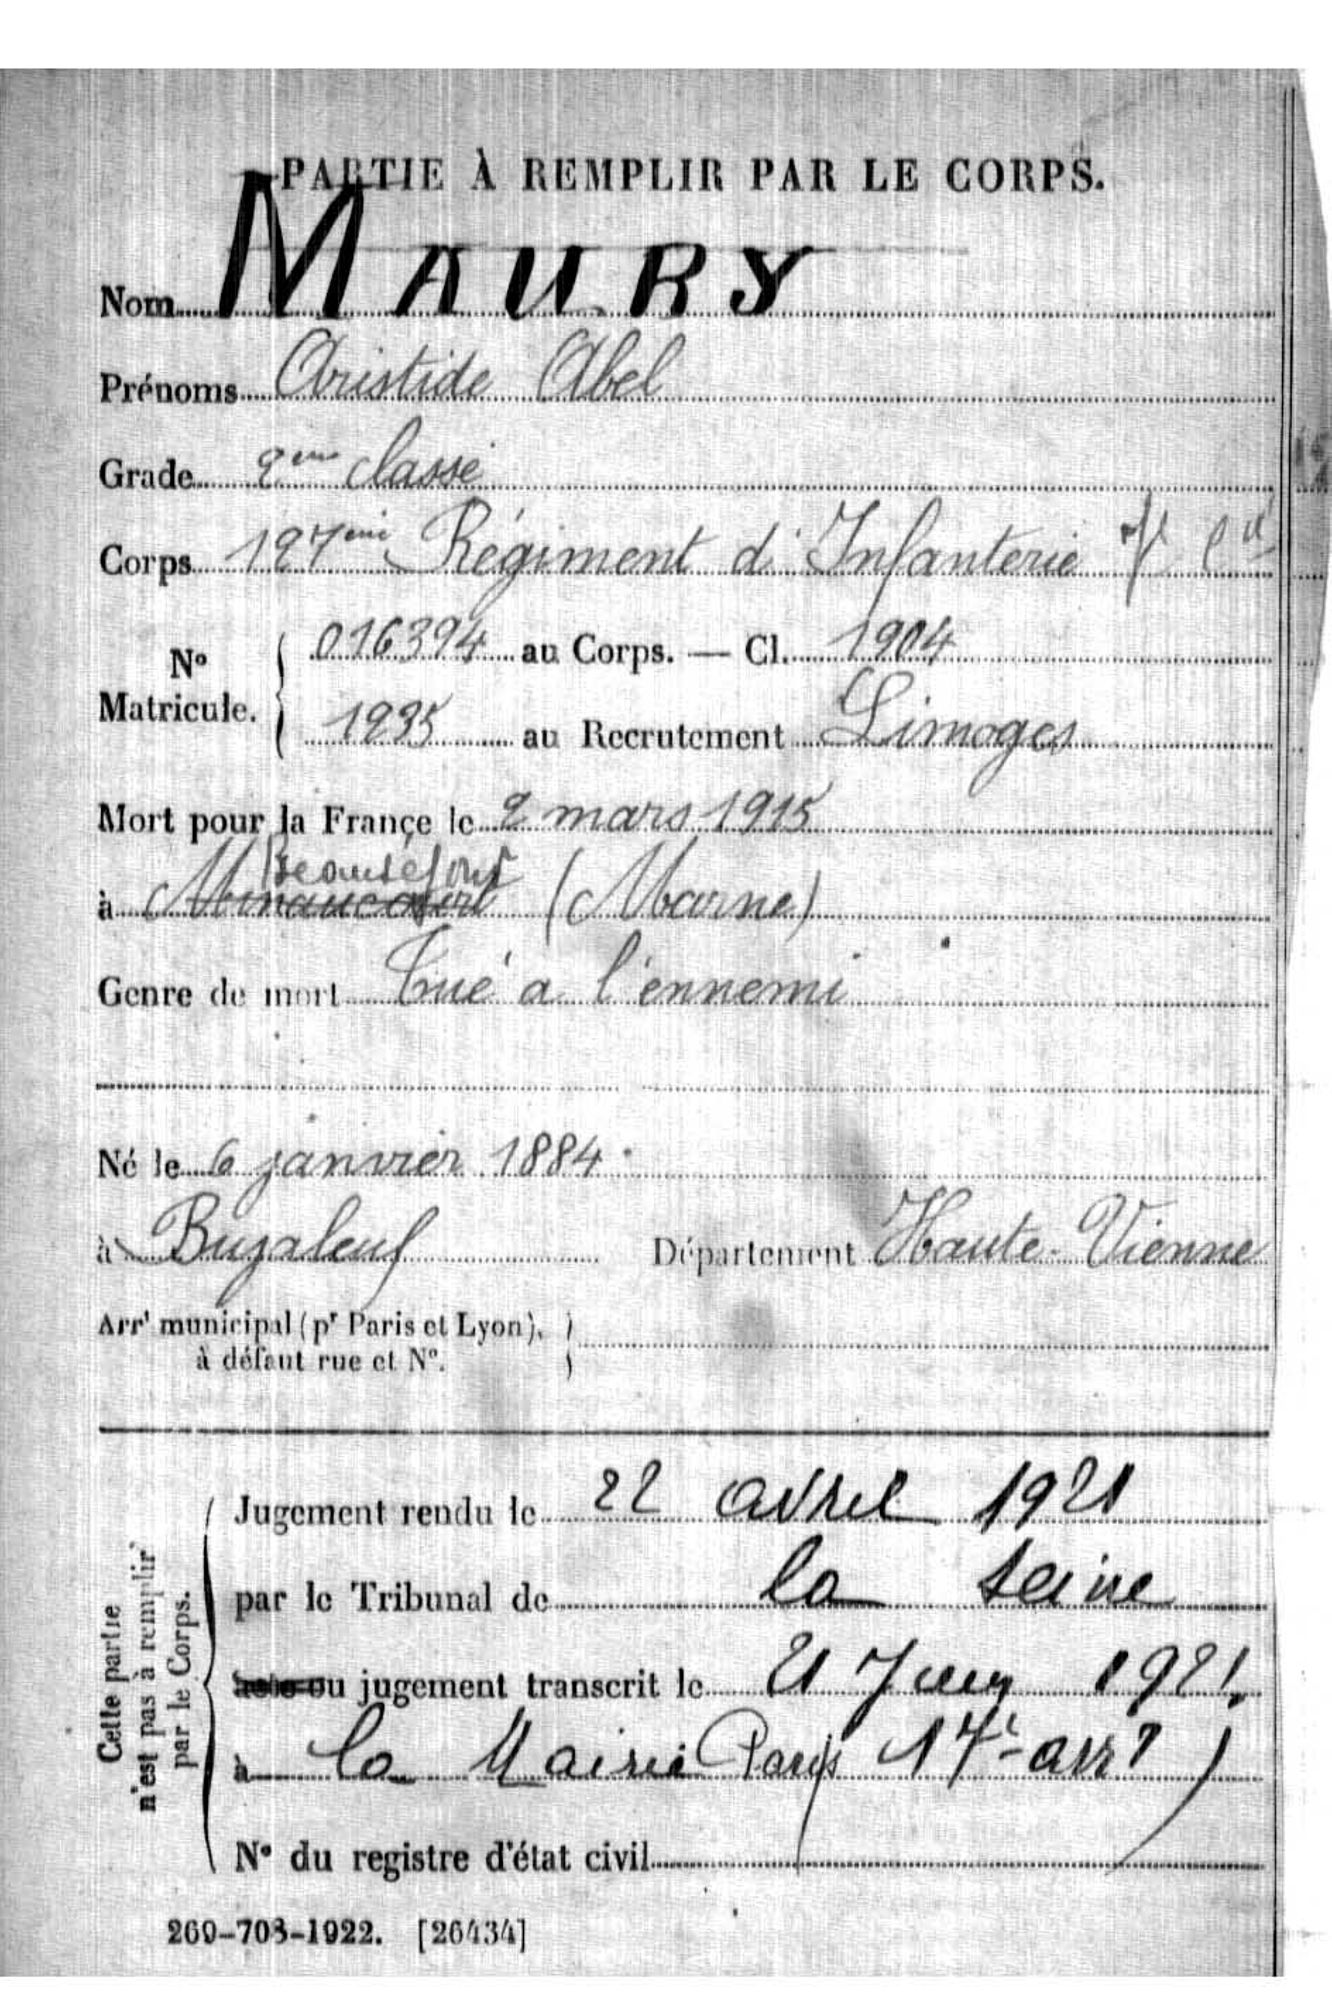 PARTIE À REMPLIR PAR LE CORPS.
Nom MAURY
Prénoms Aristide Abel
Grade 2eme classe
Corps 127eme Régiment d'Infanterie
N° Matricule. 016394 au Corps. — Cl. 1904
1935 au Recrutement Limoges
Mort pour la France le 2 mars 1915
Beauséjour
à Minaucourt (Marne)
Genre de mort Tué a l'ennemi
Né le 6 janvier 1884
à Bujaleuf Département Haute-Vienne
Arrt municipal (pr Paris et Lyon),
à défaut rue et N°.
Cette partie
n'est pas à remplir
par le Corps.
Jugement rendu le 22 avril 1921
par le Tribunal de la Seine
acte ou jugement transcrit le 21 Juin 1921.
à la Mairie Paris 17e arrt)
N° du registre d'état civil
269-708-1922. [26434]